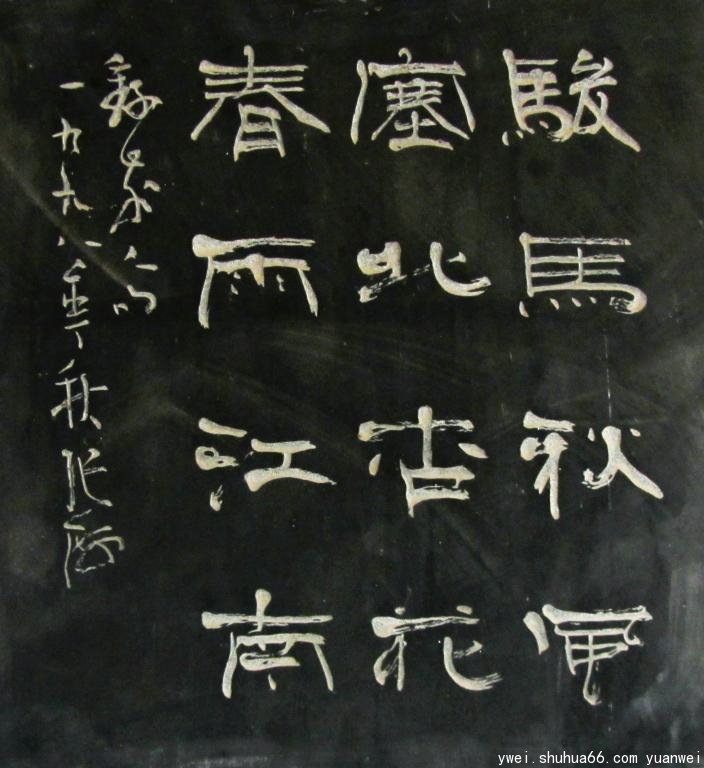 駿馬秋風
塞北杏花
春雨江南
一九九八年秋
ywei.shuhua66.com yuanwei